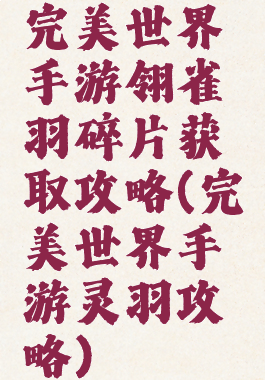 完美世界
手游翎雀
羽碎片获
取攻略(完
美世界手
游灵羽攻
略)